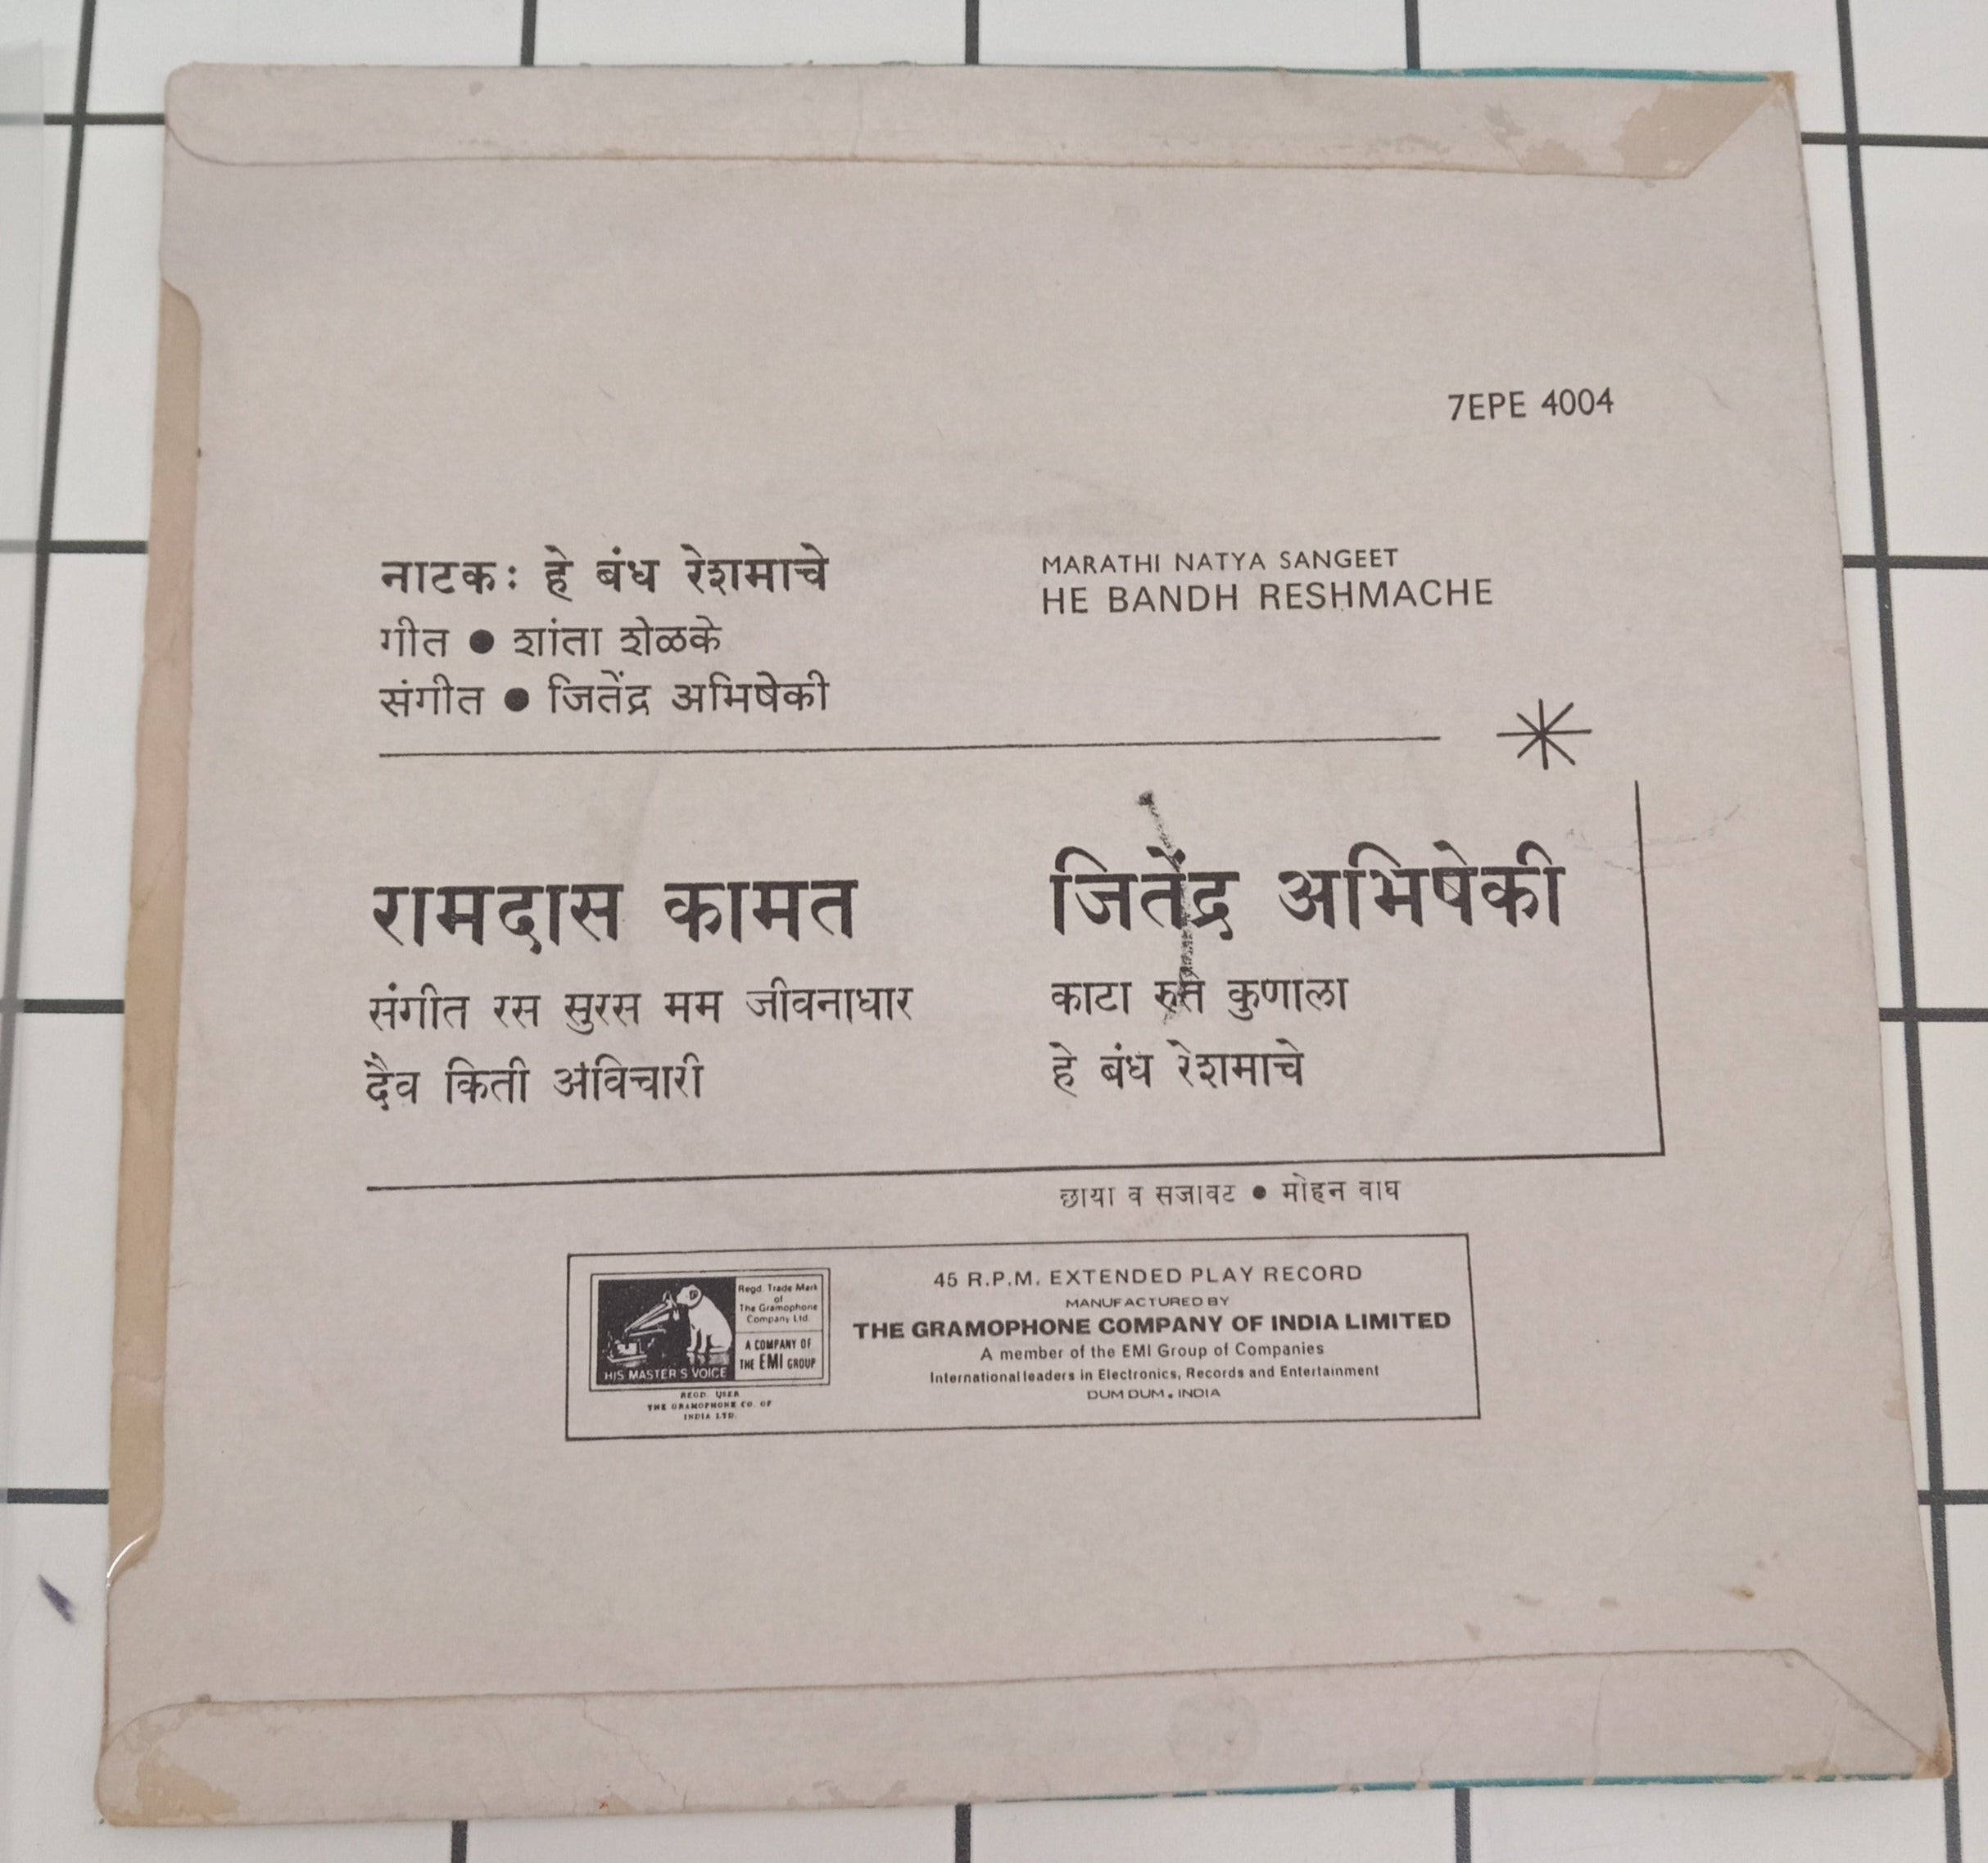 7EPE 4004
नाटक: हे बंध रेशमाचे
गीत ● शांता शेळके
संगीत ● जितेंद्र अभिषेकी
MARATHI NATYA SANGEET
HE BANDH RESHMACHE
रामदास कामत
संगीत रस सुरस मम जीवनाधार
दैव किती अविचारी
जितेंद्र अभिषेकी
काटा रुते कुणाला
हे बंध रेशमाचे
छाया व सजावट ● मोहन वाघ
Regd. Trade Mark
of
The Gramophone
Company Ltd.
A COMPANY OF
THE EMI GROUP
HIS MASTER'S VOICE
REGD. USER
THE GRAMOPHONE CO. OF
INDIA LTD.
45 R.P.M. EXTENDED PLAY RECORD
MANUFACTURED BY
THE GRAMOPHONE COMPANY OF INDIA LIMITED
A member of the EMI Group of Companies
International leaders in Electronics, Records and Entertainment
DUM DUM. INDIA